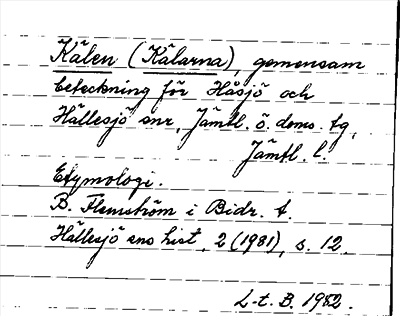 Kälen (Kälarna), gemensam
beteckning för Håsjö och
Hällesjö snr, Jämtl. ö. doms. tg,
Jämtl. l.
Etymologi.
B. Flemström i Bidr. t.
Hällesjö sns hist, 2 (1981), s. 12.
L-t. B. 1982.